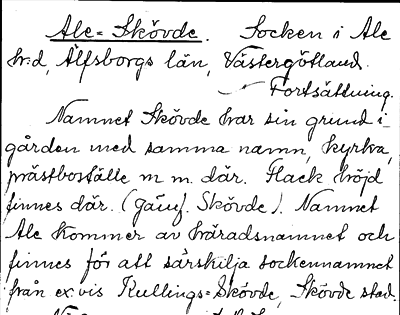 Ale-Skövde. Socken i Ale
h:d, Älfsborgs län, Västergötland.
Fortsättning.
Namnet Skövde har sin grund i
gården med samma namn, kyrka,
prästboställe m m. där. Flack höjd
finnes där. (Jämf. Skövde). Namnet
Ale kommer av häradsnamnet och
finnes för att särskilja sockennamnet
från ex vis Kullings-Skövde, Skövde stad.